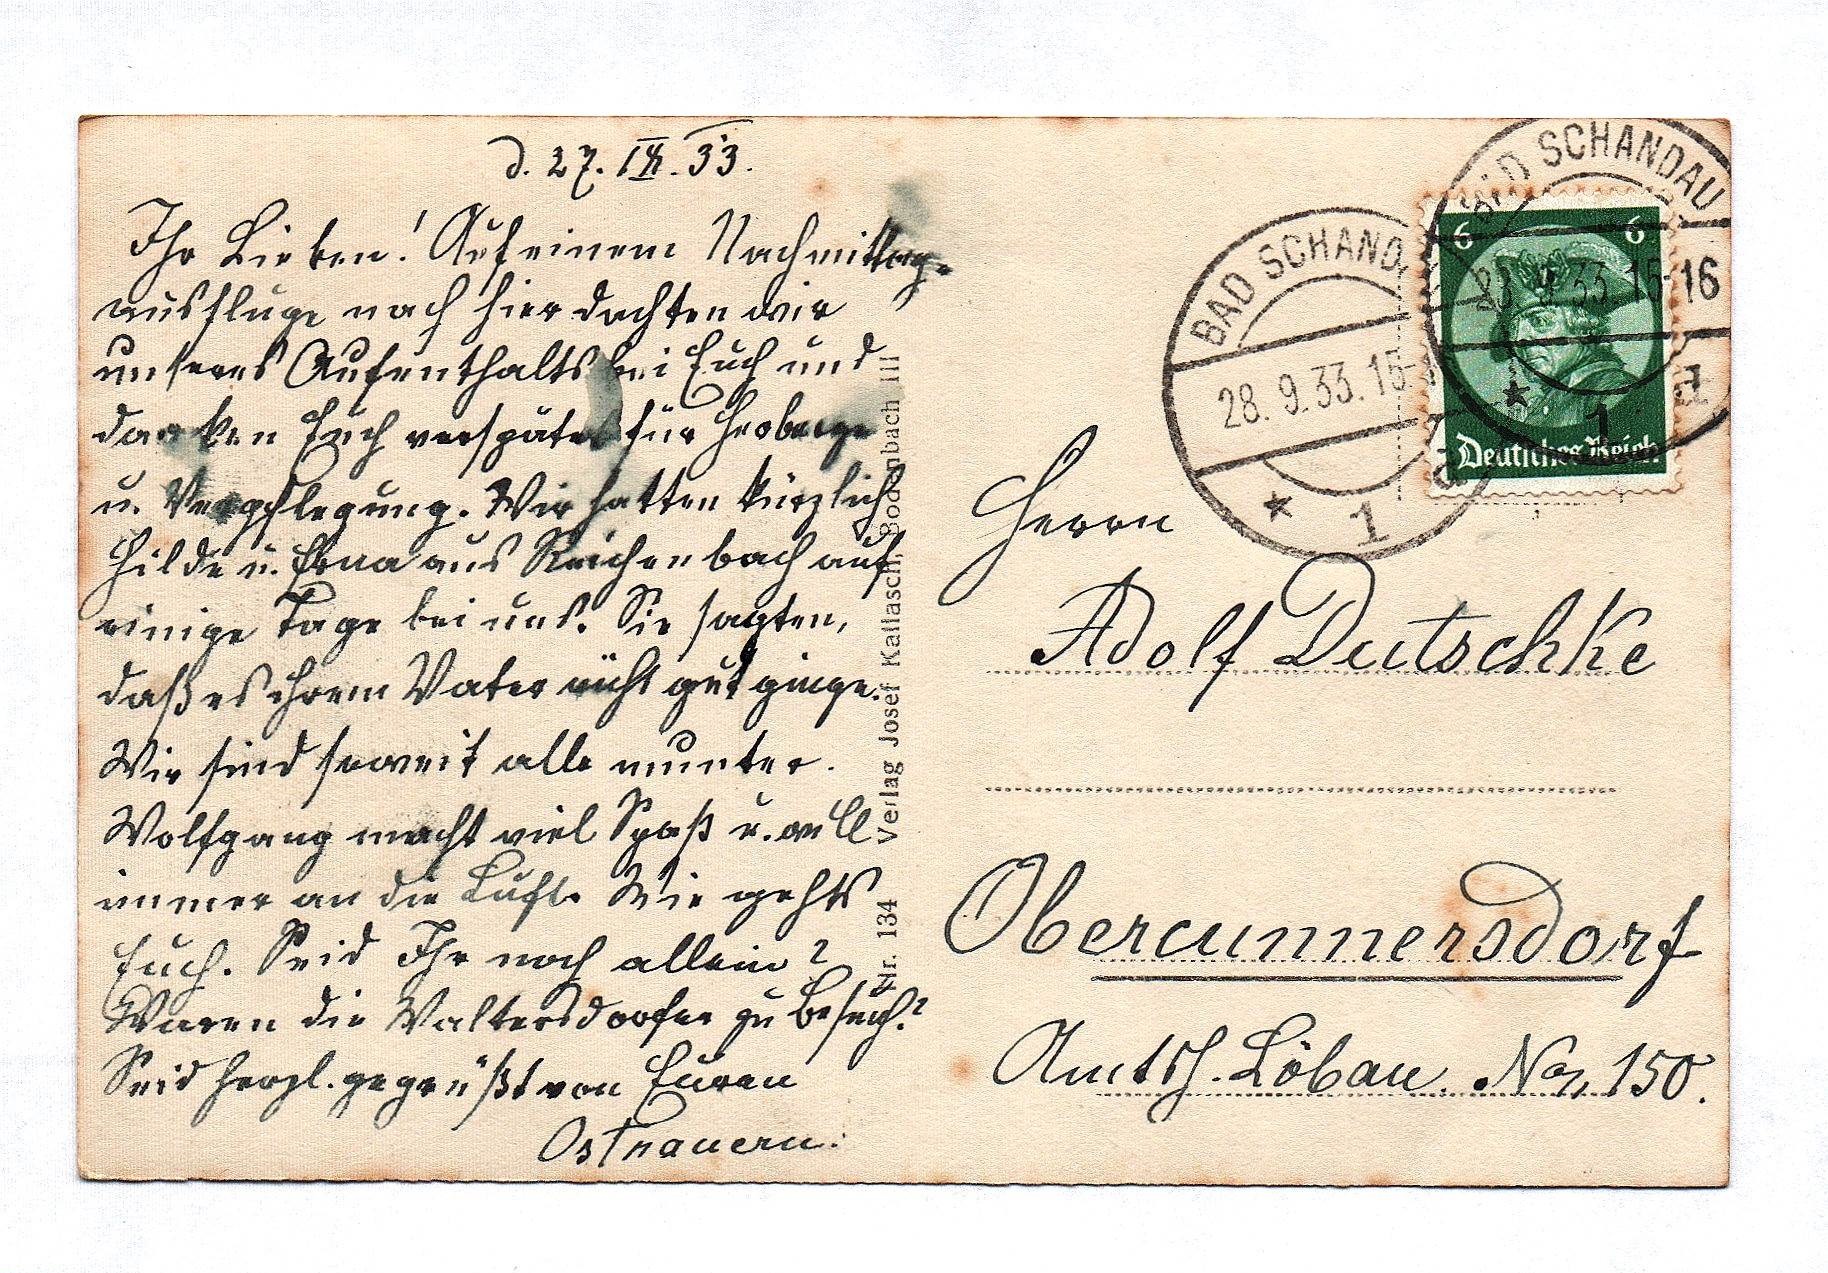 d. 27. IX. 33.
Ihr Lieben! Auf einem Nachmittag-
ausfluge nach hier dachten wir
unseres Aufenthalts bei Euch und
danken Euch verspätet für Herberge
u. Verpflegung. Wir hatten kürzlich
Hilde u. Erna aus Reichenbach auf
einige Tage bei uns. Sie sagten,
daß es ihrem Vater nicht gut ginge.
Wir sind soweit alle munter.
Wolfgang macht viel Spaß u. will
immer an die Luft. Wie gehts
Euch. Seid Ihr noch allein?
Waren die Waltersdorfer zu Besuch?
Seid herzl. gegrüßt von Euren
Ostrauern.
Nr. 134 Verlag Josef Kallasch, Bodenbach III
BAD SCHANDAU
28. 9. 33. 15-16
* 1 a
BAD SCHANDAU
28. 9. 33. 15-16
* 1 a
6 6
Deutsches Reich
Herrn
Adolf Dutschke
Obercunnersdorf
Amtsh. Löbau. No. 150.